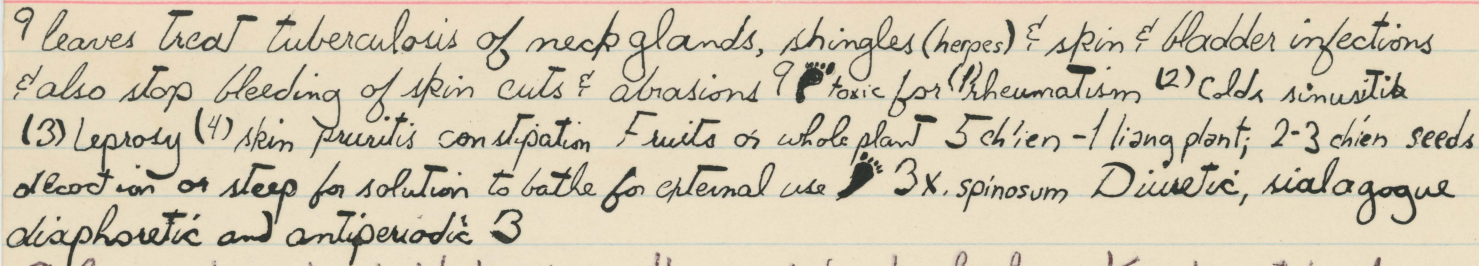 9 leaves treat tuberculosis of neck glands, shingles (herpes) & skin & bladder infections
& also stop bleeding of skin cuts & abrasions 9 toxic for (1) rheumatism (2) Colds sinusitis
(3) Leprosy (4) skin pruritis constipation Fruits or whole plant 5 ch'ien - 1 liang plant; 2-3 chien seeds
decoction or steep for solution to bathe for external use 3 x. spinosum Diuretic, sialagogue
diaphoretic and antiperiodic 3